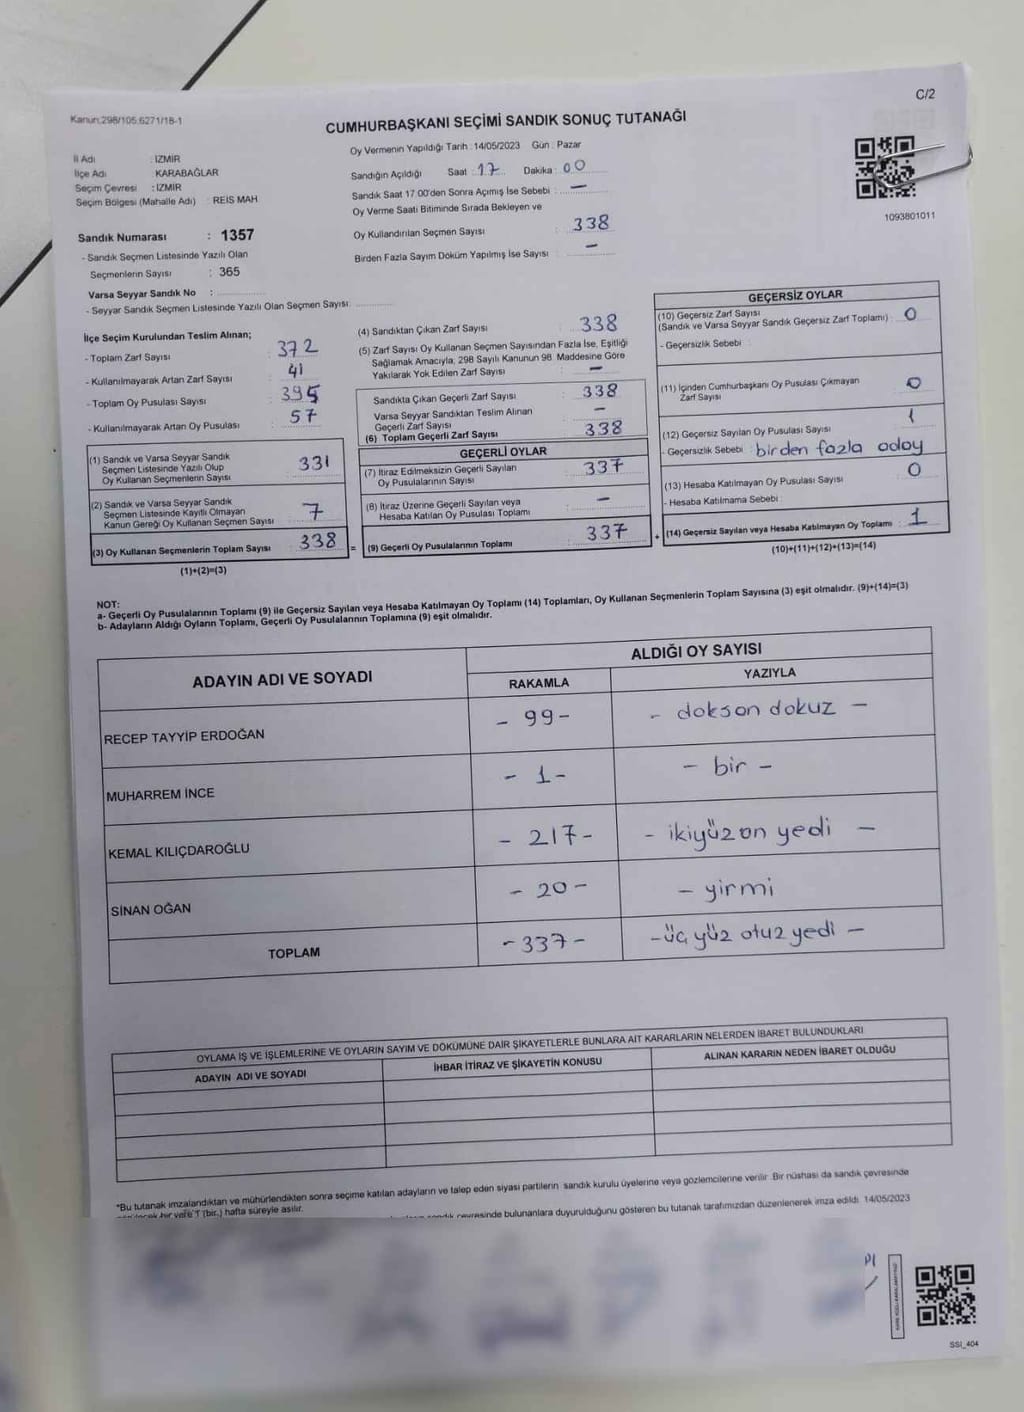 C/2
Kanun:298/105.6271/18-1
CUMHURBAŞKANI SEÇİMİ SANDIK SONUÇ TUTANAĞI
İl Adı : İZMİR
İlçe Adı : KARABAĞLAR
Seçim Çevresi : İZMİR
Seçim Bölgesi (Mahalle Adı) : REIS MAH
Sandık Numarası : 1357
- Sandık Seçmen Listesinde Yazılı Olan
Seçmenlerin Sayısı : 365
Varsa Seyyar Sandık No :
- Seyyar Sandık Seçmen Listesinde Yazılı Olan Seçmen Sayısı:
Oy Vermenin Yapıldığı Tarih : 14/05/2023 Gün : Pazar
Sandığın Açıldığı Saat : 17 Dakika : 00
Sandık Saat 17:00'den Sonra Açımış İse Sebebi : —
Oy Verme Saati Bitiminde Sırada Bekleyen ve
Oy Kullandırılan Seçmen Sayısı : 338
Birden Fazla Sayım Döküm Yapılmış İse Sayısı : —
1093801011
İlçe Seçim Kurulundan Teslim Alınan;
- Toplam Zarf Sayısı : 372
- Kullanılmayarak Artan Zarf Sayısı : 41
- Toplam Oy Pusulası Sayısı : 395
- Kullanılmayarak Artan Oy Pusulası : 57
(1) Sandık ve Varsa Seyyar Sandık
Seçmen Listesinde Yazılı Olup
Oy Kullanan Seçmenlerin Sayısı : 331
(2) Sandık ve Varsa Seyyar Sandık
Seçmen Listesinde Kayıtlı Olmayan
Kanun Gereği Oy Kullanan Seçmen Sayısı : 7
(3) Oy Kullanan Seçmenlerin Toplam Sayısı : 338
(1)+(2)=(3)
(4) Sandıktan Çıkan Zarf Sayısı : 338
(5) Zarf Sayısı Oy Kullanan Seçmen Sayısından Fazla İse, Eşitliği
Sağlamak Amacıyla, 298 Sayılı Kanunun 98. Maddesine Göre
Yakılarak Yok Edilen Zarf Sayısı : —
Sandıkta Çıkan Geçerli Zarf Sayısı : 338
Varsa Seyyar Sandıktan Teslim Alınan
Geçerli Zarf Sayısı : —
(6) Toplam Geçerli Zarf Sayısı : 338
GEÇERLİ OYLAR
(7) İtiraz Edilmeksizin Geçerli Sayılan
Oy Pusulalarının Sayısı : 337
(8) İtiraz Üzerine Geçerli Sayılan veya
Hesaba Katılan Oy Pusulası Toplamı : —
= (9) Geçerli Oy Pusulalarının Toplamı : 337
GEÇERSİZ OYLAR
(10) Geçersiz Zarf Sayısı
(Sandık ve Varsa Seyyar Sandık Geçersiz Zarf Toplamı) : 0
- Geçersizlik Sebebi :
(11) İçinden Cumhurbaşkanı Oy Pusulası Çıkmayan
Zarf Sayısı : 0
(12) Geçersiz Sayılan Oy Pusulası Sayısı : 1
- Geçersizlik Sebebi : birden fazla aday
(13) Hesaba Katılmayan Oy Pusulası Sayısı : 0
- Hesaba Katılmama Sebebi :
+ (14) Geçersiz Sayılan veya Hesaba Katılmayan Oy Toplamı : 1
(10)+(11)+(12)+(13)=(14)
NOT:
a- Geçerli Oy Pusulalarının Toplamı (9) ile Geçersiz Sayılan veya Hesaba Katılmayan Oy Toplamı (14) Toplamları, Oy Kullanan Seçmenlerin Toplam Sayısına (3) eşit olmalıdır. (9)+(14)=(3)
b- Adayların Aldığı Oyların Toplamı, Geçerli Oy Pusulalarının Toplamına (9) eşit olmalıdır.
ADAYIN ADI VE SOYADI
ALDIĞI OY SAYISI
RAKAMLA YAZIYLA
RECEP TAYYİP ERDOĞAN - 99 - - dokson dokuz -
MUHARREM İNCE - 1 - - bir -
KEMAL KILIÇDAROĞLU - 217 - - ikiyüz on yedi -
SİNAN OĞAN - 20 - - yirmi
TOPLAM - 337 - - üç yüz otuz yedi -
OYLAMA İŞ VE İŞLEMLERİNE VE OYLARIN SAYIM VE DÖKÜMÜNE DAİR ŞİKAYETLERLE BUNLARA AİT KARARLARIN NELERDEN İBARET BULUNDUKLARI
ADAYIN ADI VE SOYADI İHBAR İTİRAZ VE ŞİKAYETİN KONUSU ALINAN KARARIN NEDEN İBARET OLDUĞU
*Bu tutanak imzalandıktan ve mühürlendikten sonra seçime katılan adayların ve talep eden siyasi partilerin sandık kurulu üyelerine veya gözlemcilerine verilir. Bir nüshası da sandık çevresinde
bir yere 1 (bir.) hafta süreyle asılır.
çevresinde bulunanlara duyurulduğunu gösteren bu tutanak tarafımızdan düzenlenerek imza edildi. 14/05/2023
SSI_404